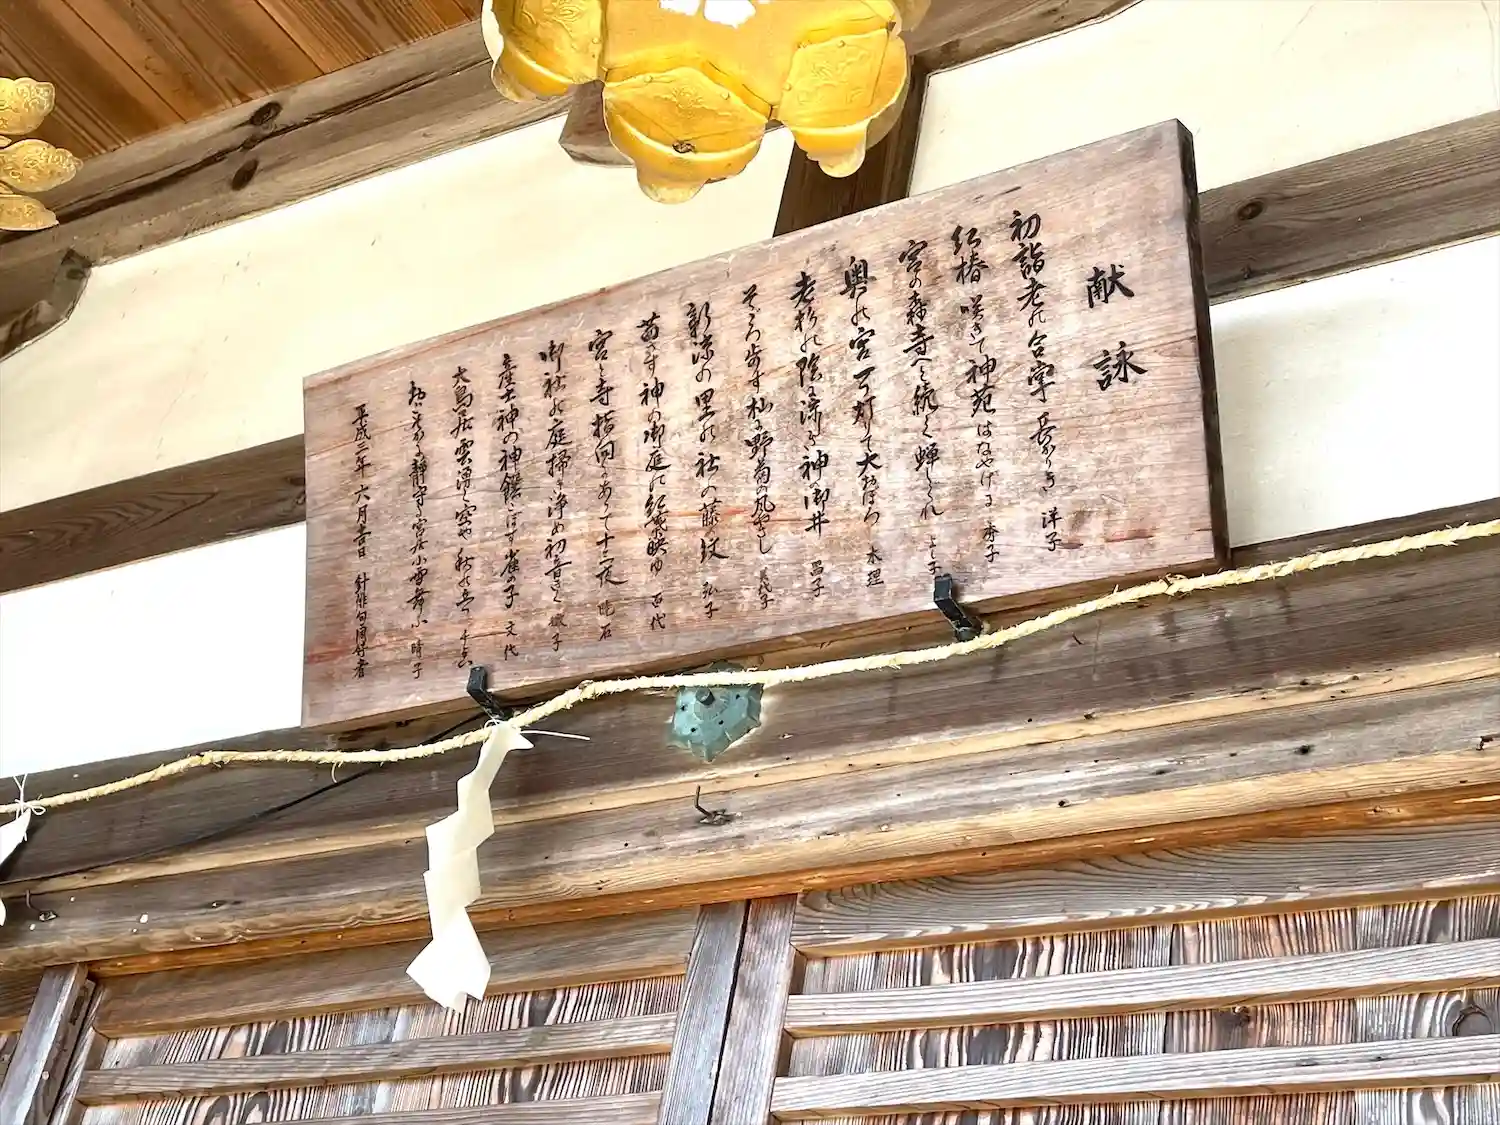 献詠
初詣老の合掌長かりき 洋子
紅椿咲きて神苑はなやげる 秀子
宮の森寺へと続く蝉しぐれ よし子
奥の宮一灯て大おぼろ 木理
老杉の陰に涼しき神の御井 昌子
そぞろ歩す杣に野菊の風やさし 美代子
新涼の里の社の藤は 弘子
神の御庭に紅葉映ゆ 百代
宮と寺指向あって十三夜 晩石
御社の庭掃き浄め初音きく 淑子
産土神の神饌こぼす雀の子 文代
大鳥居雲湧く空や秋の声 千恵
静寂宮居小雪舞ふ 晴子
平成二年六月吉日 俳句同好者